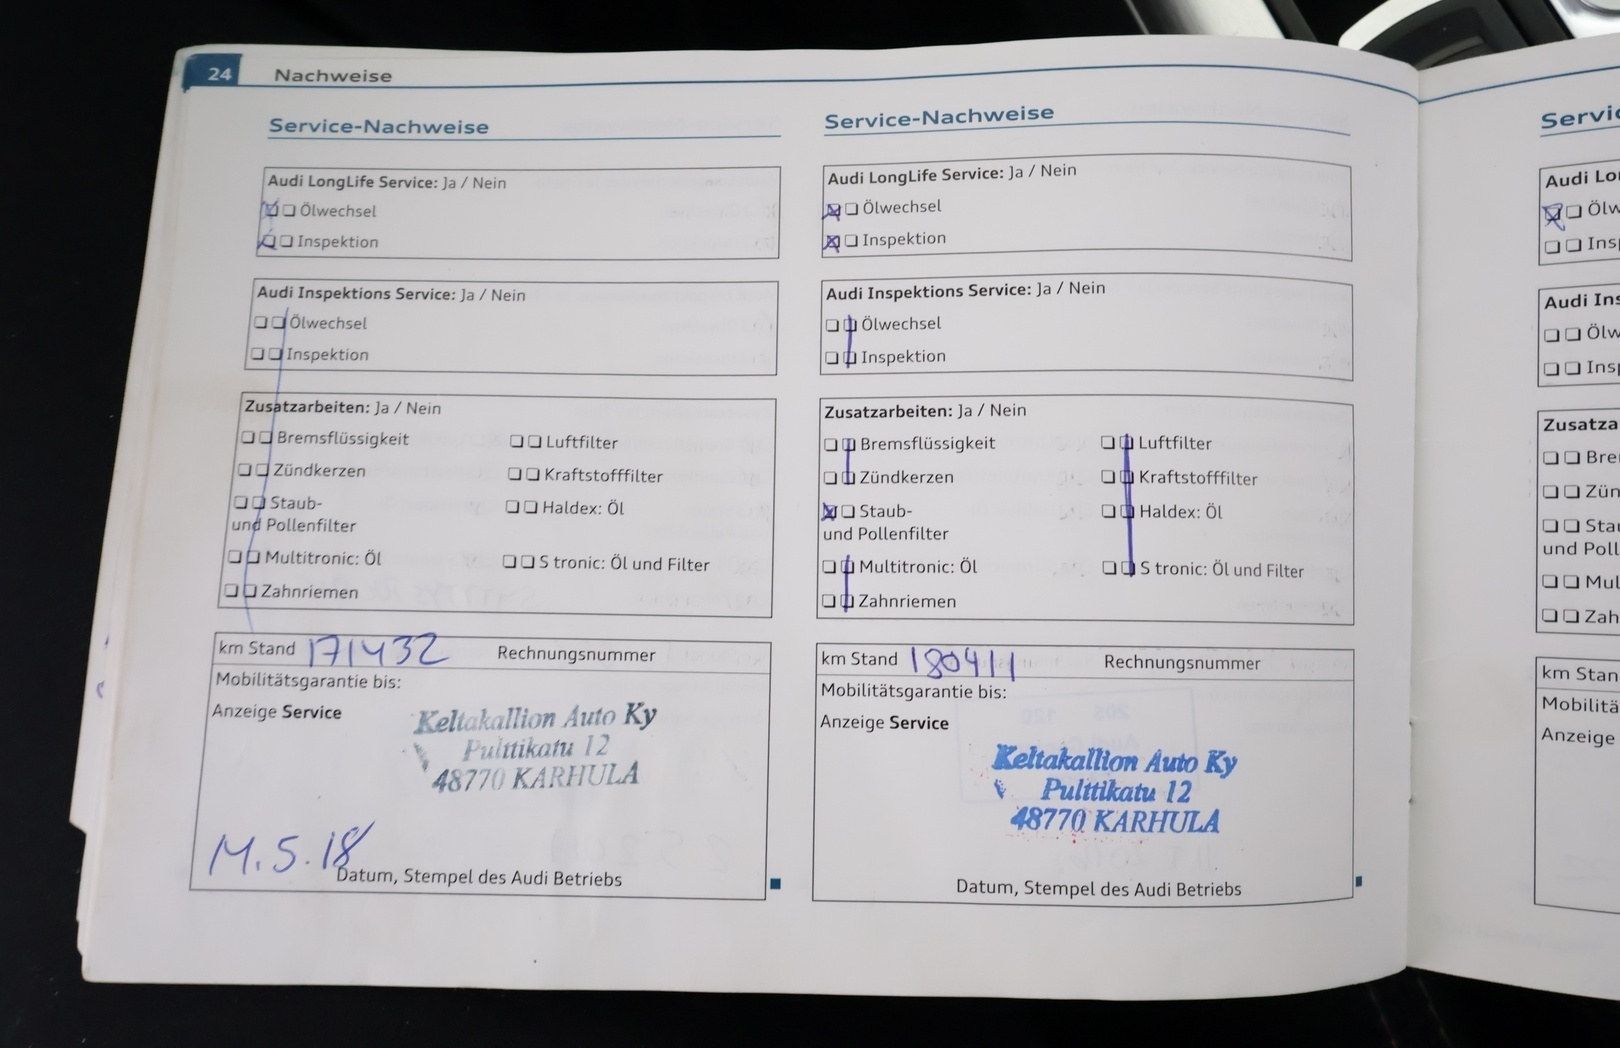 24 Nachweise
Service-Nachweise
Audi LongLife Service: Ja / Nein
Ölwechsel
Inspektion
Audi Inspektions Service: Ja / Nein
Ölwechsel
Inspektion
Zusatzarbeiten: Ja / Nein
Bremsflüssigkeit Luftfilter
Zündkerzen Kraftstofffilter
Staub- Haldex: Öl
und Pollenfilter
Multitronic: Öl S tronic: Öl und Filter
Zahnriemen
km Stand 171432 Rechnungsnummer
Mobilitätsgarantie bis:
Anzeige Service
Keltakallion Auto Ky
Pulttikatu 12
48770 KARHULA
M.5.18
Datum, Stempel des Audi Betriebs
Service-Nachweise
Audi LongLife Service: Ja / Nein
Ölwechsel
Inspektion
Audi Inspektions Service: Ja / Nein
Ölwechsel
Inspektion
Zusatzarbeiten: Ja / Nein
Bremsflüssigkeit Luftfilter
Zündkerzen Kraftstofffilter
Staub- Haldex: Öl
und Pollenfilter
Multitronic: Öl S tronic: Öl und Filter
Zahnriemen
km Stand 180411 Rechnungsnummer
Mobilitätsgarantie bis:
Anzeige Service
Keltakallion Auto Ky
Pulttikatu 12
48770 KARHULA
Datum, Stempel des Audi Betriebs
Servic
Audi Lo
Ölw
Insp
Audi Ins
Ölw
Insp
Zusatza
Bre
Zün
Stau
und Poll
Mul
Zah
km Stan
Mobilitä
Anzeige